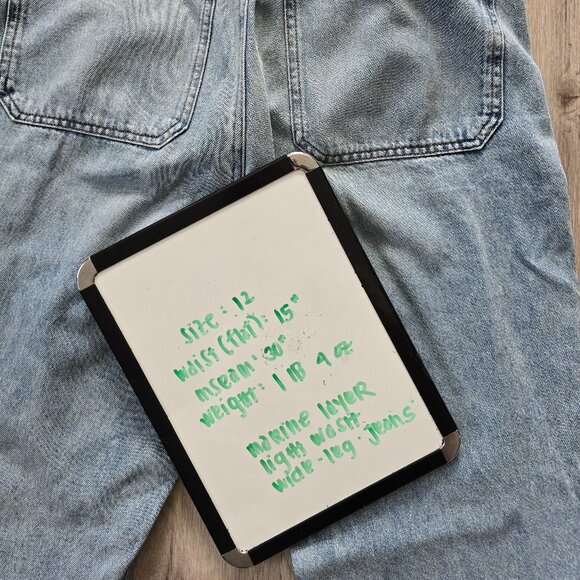 size: 12
waist (flat): 15"
inseam: 30"
weight: 1 lB 4 oz
marine layer
light wash
wide-leg jeans